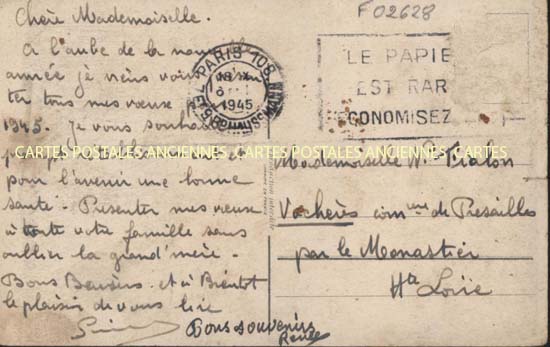 Chère Mademoiselle.
A l'aube de la nouvelle
année je viens vous
ter tous mes vœux
1945. Je vous
et
pour l'avenir une bonne
santé. Présenter mes vœux
à toute votre famille sans
oublier la grand'mère.
Bons Baisers. et à Bientôt
le plaisir de vous lire
Bons souvenirs
Renée
F02628
PARIS 108
1945
LE PAPIE
EST RAR
CONOMISEZ
CARTES POSTALES ANCIENNES CARTES POSTALES ANCIENNES CARTES
Mademoiselle
Vachères comune de Présailles
par le Monastier
Hte Loire